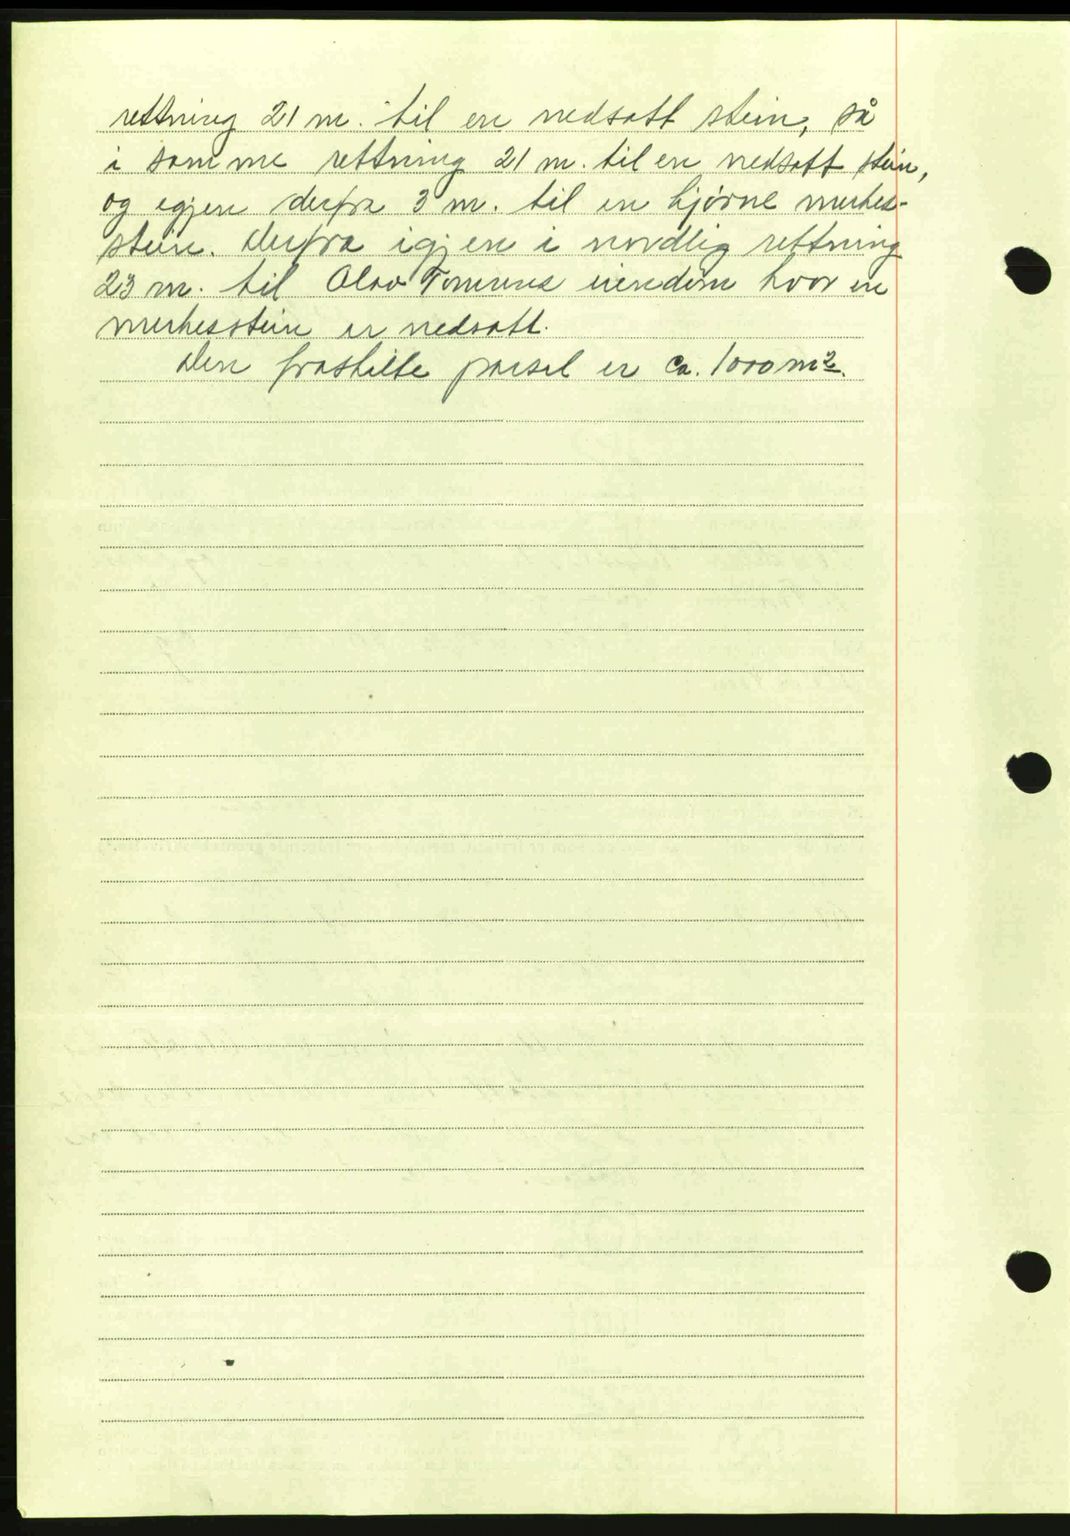 rettning 21 m. til en nedsatt stein, så
i samme rettning 21 m. til en nedsatt stein,
og igjen derfra 3 m. til en hjørne merkes-
stein. Derfra igjen i nordlig rettning
23 m. til Olav eiendom hvor en
merkesstein er nedsatt.
Den fraskilte parsel er ca. 1000 m².